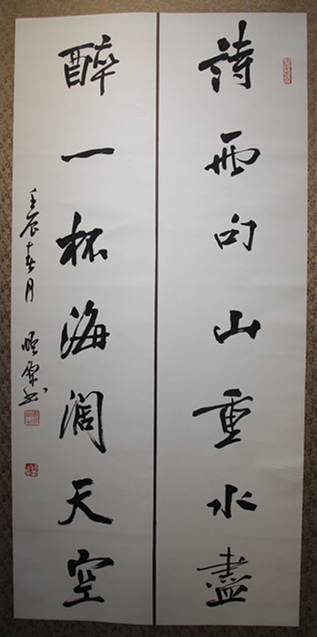 詩兩句山重水盡
醉一杯海闊天空
壬辰春月
書